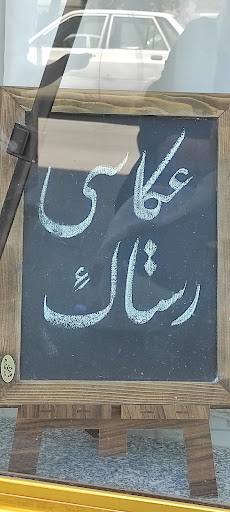 عکاسی
رستاک